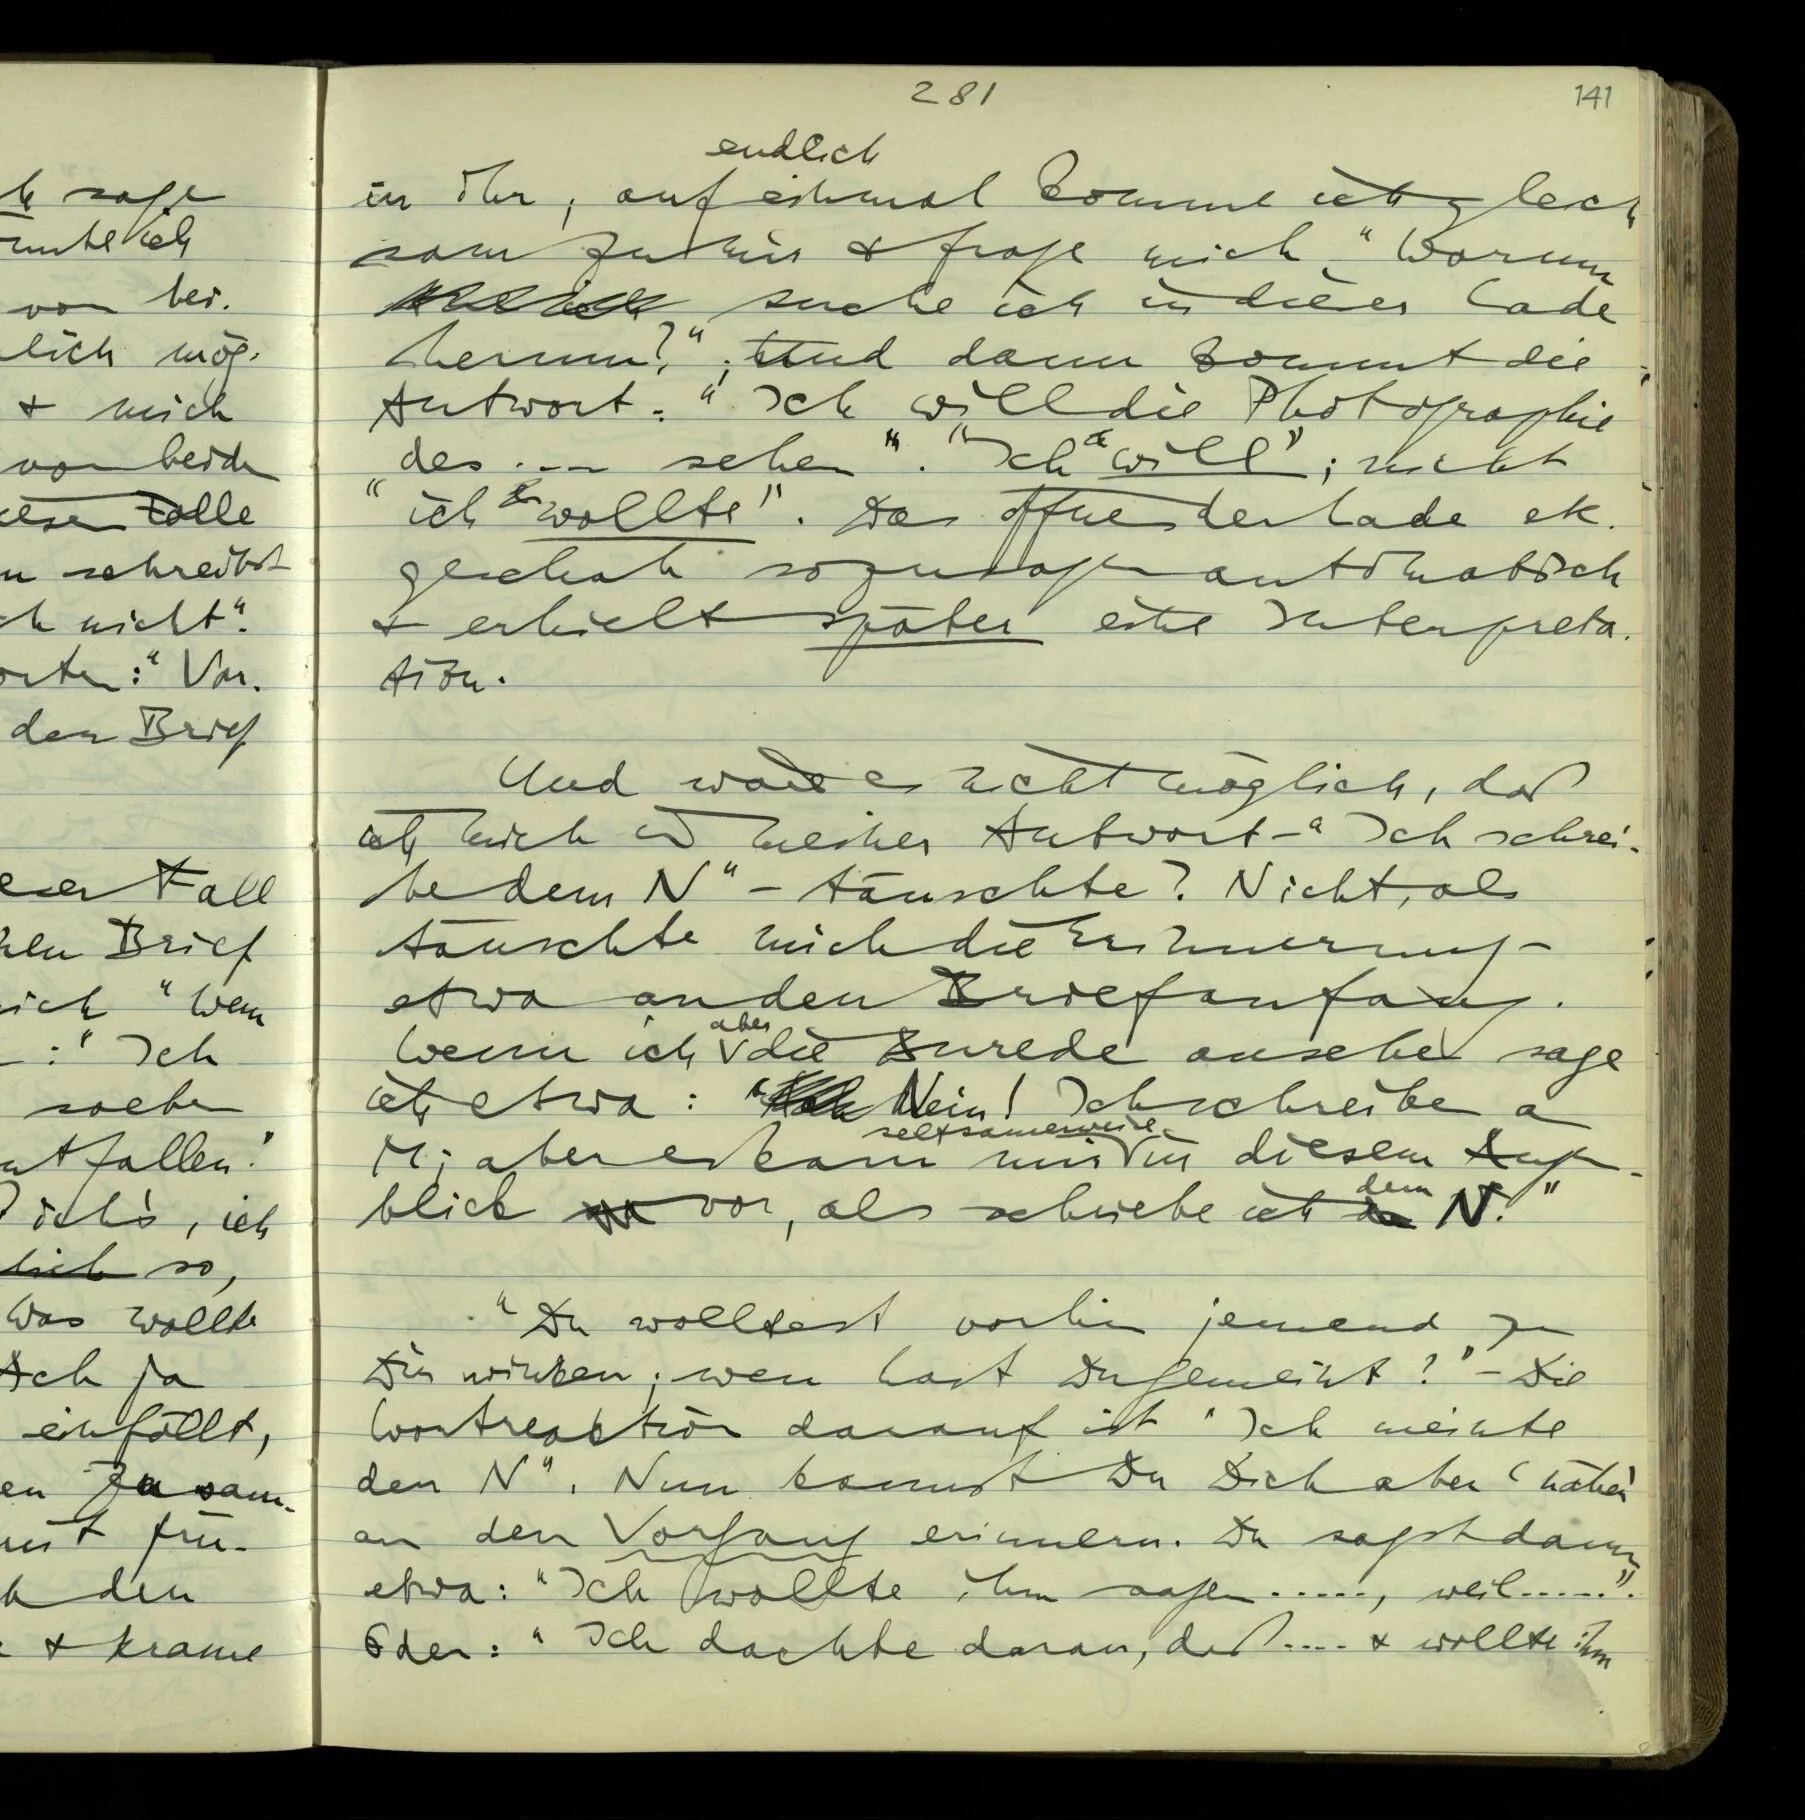 sage
ich
von bei.
lich mög-
& mich
von beiden
Falle
schreibst
nicht".
: " Vor.
den Brief
Fall
Brief
"Wem
:" Ich
soeben
ich's, ich
so,
Was wollte
ich ja
einfällt,
zusam-
mit frü-
den
& krame
281
141
endlich
in ihr; auf einmal komme ich gleich
sam zu mir & frage mich "Warum
suche ich in dieser Lade
herum?"; Und dann kommt die
Antwort: "Ich will die Photographie
des ... sehen". "Ich will"; nicht
"ich wollte". Das Öffnen der Lade etc.
geschah sozusagen automatisch
& erhielt später eine Interpreta-
tion.
Und wäre es nicht möglich, daß
ich mich in meiner Antwort – "Ich schrei-
be dem N" – täuschte? Nicht, als
täuschte mich die Erinnerung –
etwa an den Briefanfang.
aber
Wenn ich die Anrede ansehe sage
ich etwa: "Nein! Ich schreibe an
seltsamerweise
M; aber es kam mir in diesem Augen-
dem
blick vor, als schriebe ich N."
"Du wolltest vorhin jemand zu
Dir winken; wen hast Du gemeint?" – Die
Wortreaktion darauf ist "Ich meinte
den N". Nun kannst Du Dich aber 'näher'
an den Vorgang erinnern. Du sagst dann
etwa: "Ich wollte ihm sagen ....., weil .....".
Oder: "Ich dachte daran, daß .... & wollte ihm